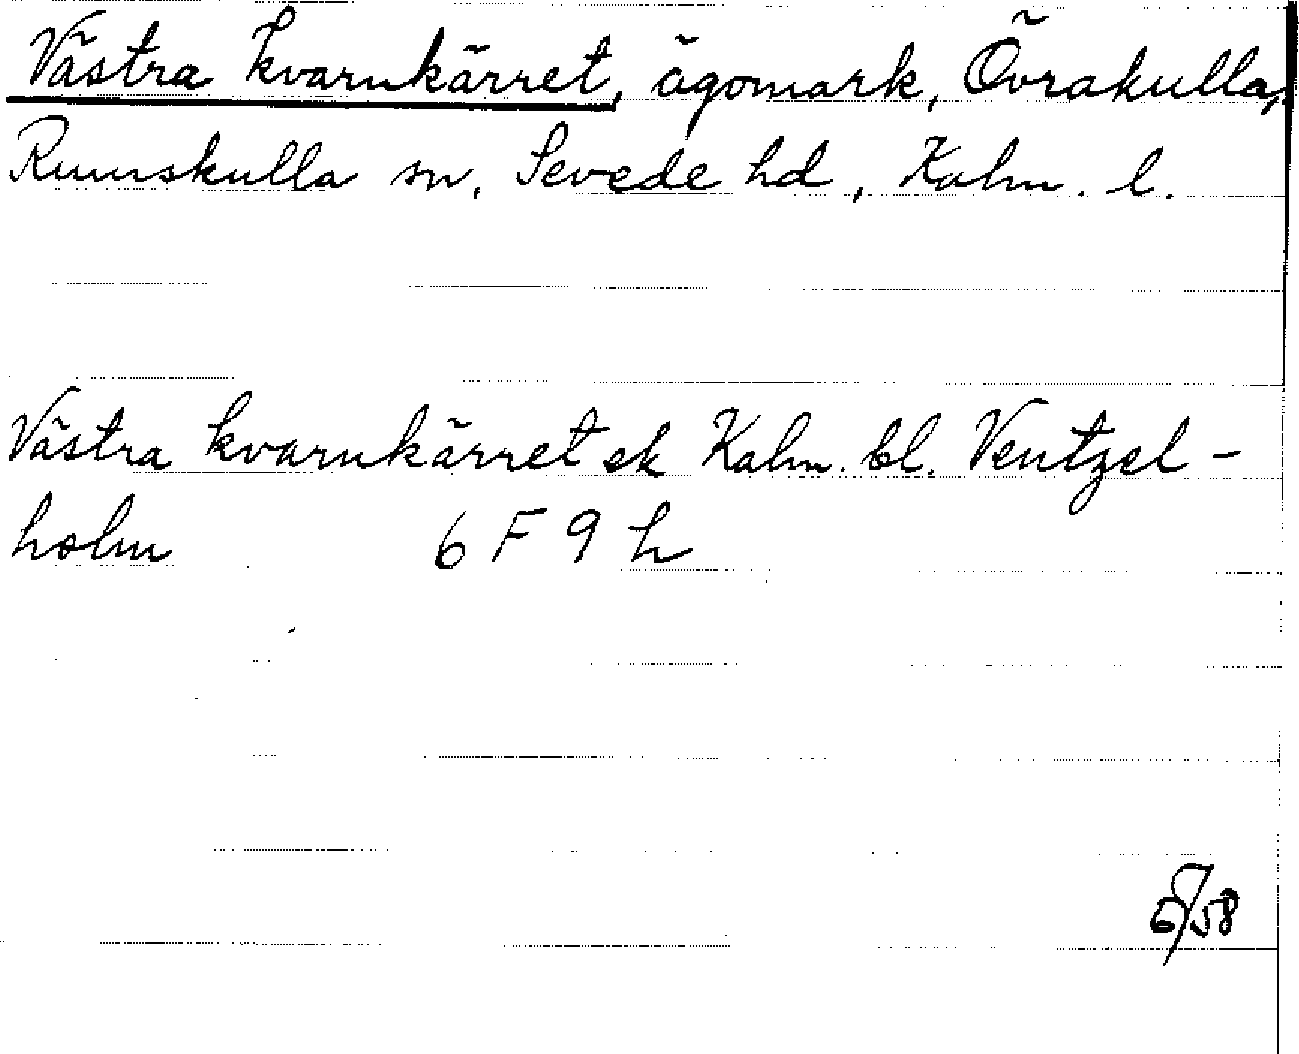 Västra kvarnkärret, ägomark, Övrakulla,
Rumskulla sn, Sevede hd, Kalm. l.
Västra kvarnkärret ek Kalm. bl. Ventzel-
holm 6 F 9 h
6/58